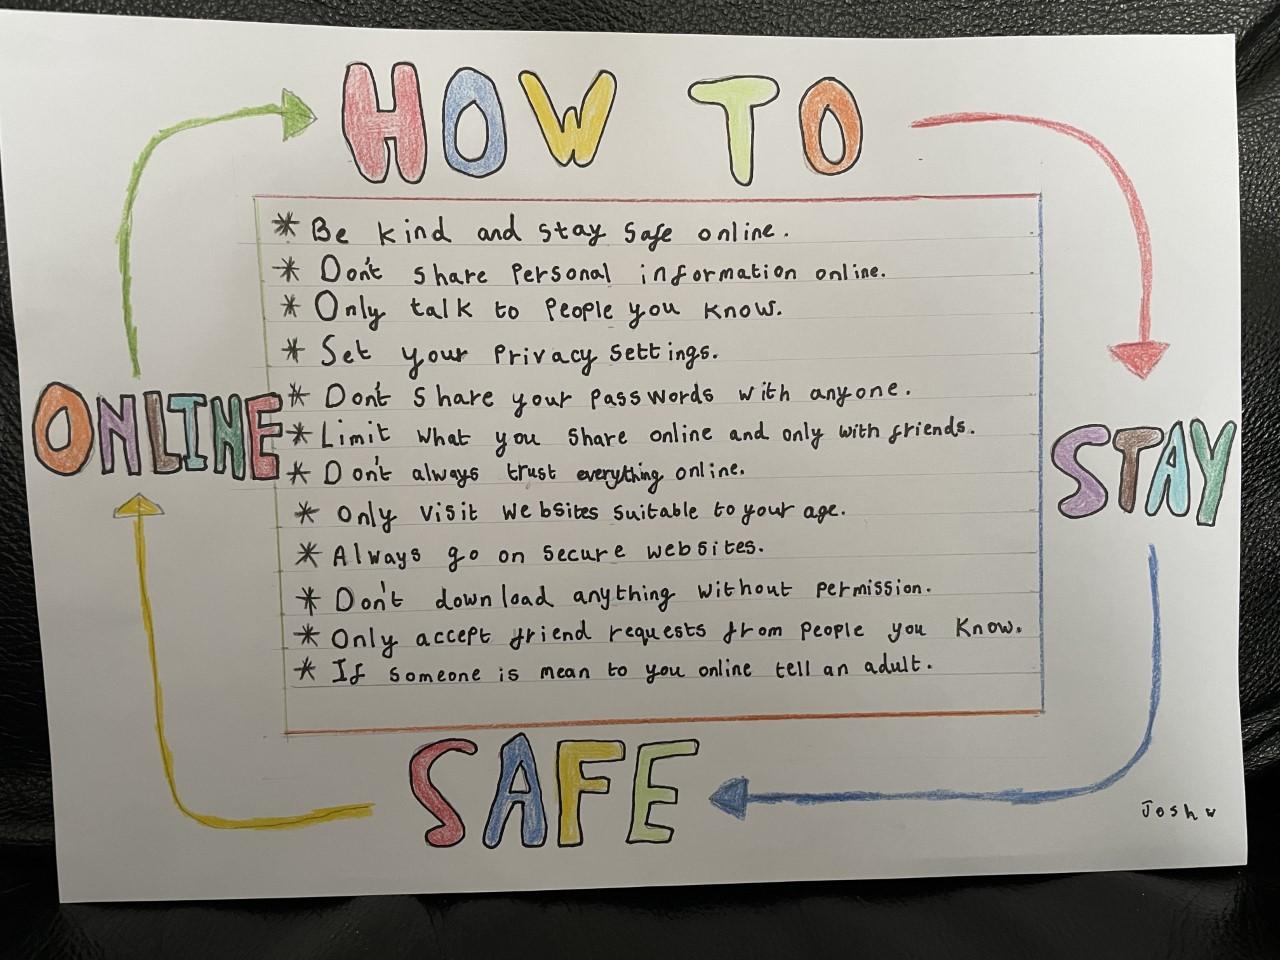 HOW TO
STAY
SAFE
ONLINE
* Be kind and stay safe online.
* Don't share personal information online.
* Only talk to people you know.
* Set your privacy settings.
* Don't share your passwords with anyone.
* Limit what you share online and only with friends.
* Don't always trust everything online.
* Only visit websites suitable to your age.
* Always go on secure websites.
* Don't download anything without permission.
* Only accept friend requests from people you know.
* If someone is mean to you online tell an adult.
Josh w